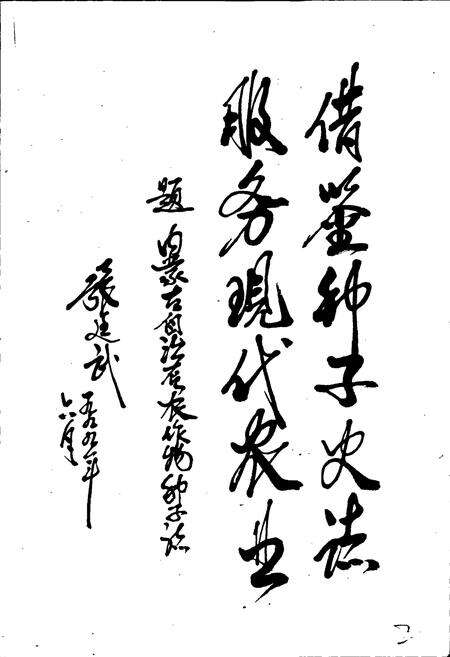 借鉴种子史志
服务现代农业
题 内蒙古自治区农作物种子志
张廷武
一九九一年
六月